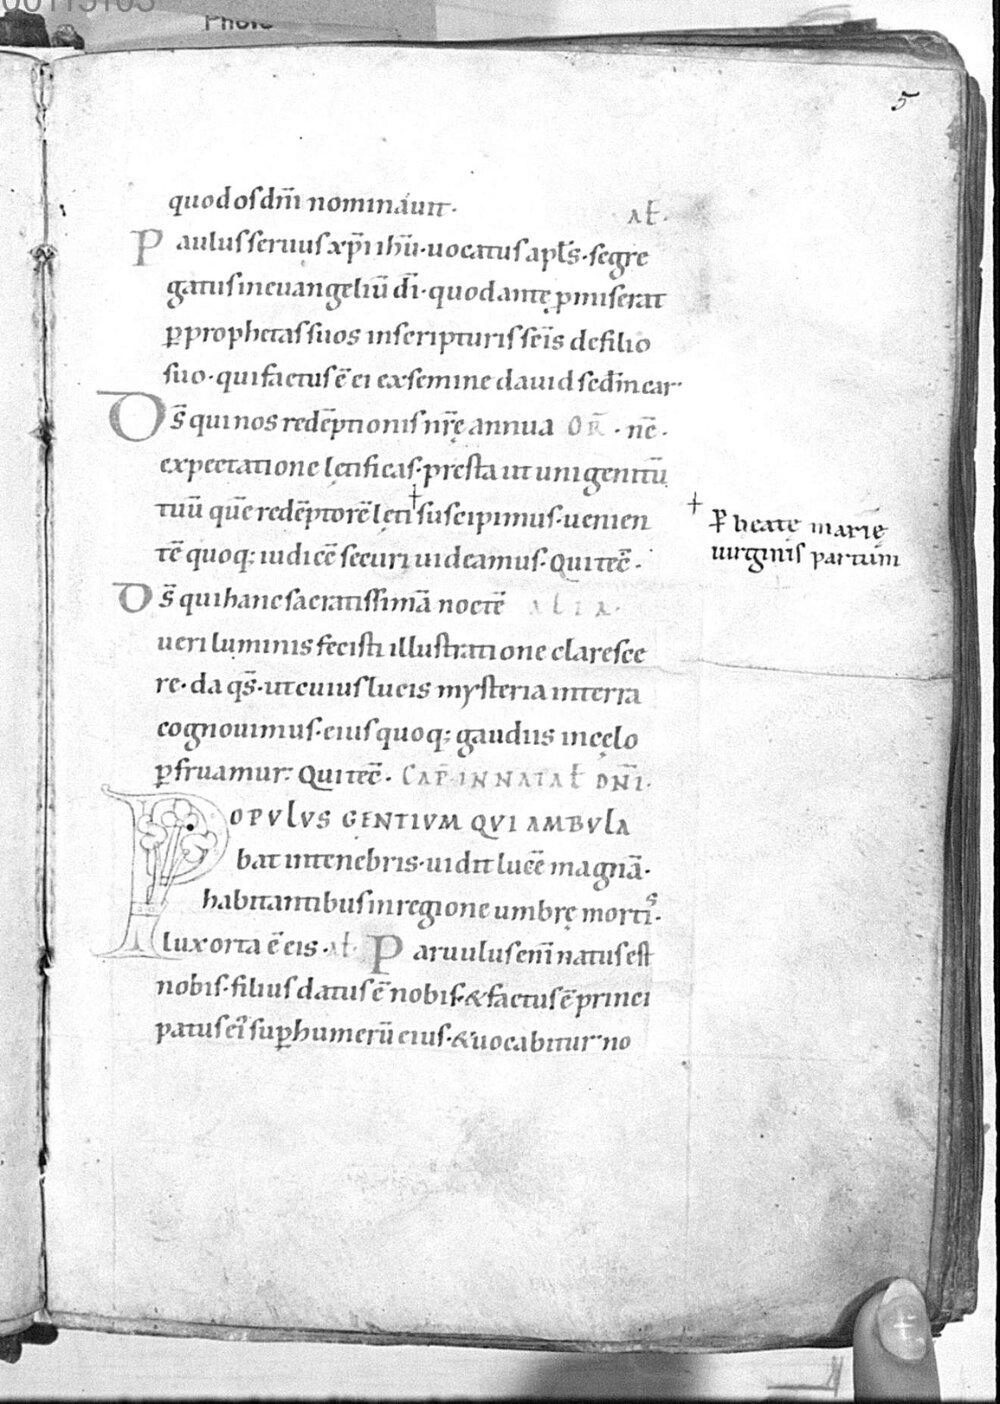 00115103
Photo
5
quod os dn̄i nominauit.
Al̄.
Paulus seruus xp̄i ih̄u. uocatus apl̄s. segre
gatus in euangeliū dī. quod antę p̄miserat
ꝑ prophetas suos in scripturis sc̄is de filio
suo. qui factus ē ei ex semine dauid sed̄m car.
Ds̄ qui nos redēptionis nr̄ę annua OR̄. nc̄.
expectatione lętificas. presta ut unigenitū
tuū quē redēptorē lęti + suscipimus. uenien
+ ꝑ beatę marię
uirginis partum
tē quoq; iudicē securi uideamus. Qui tēc̄.
Ds̄ qui hanc sacratissimā noctē ALIA.
ueri luminis fecisti illustratione claresce
re. da qs̄. ut cuius lucis mysteria in terra
cognouimus. eius quoq; gaudiis in cęlo
ꝑfruamur. Qui tēc̄. CAP̄ IN NATAL̄ DN̄I.
POPVLVS GENTIVM QVI AMBVLA
bat in tenebris. uidit lucē magnā.
habitantibus in regione umbrę mortis.
lux orta ē eis. Al̄. Paruulus enī natus est
nobis. filius datus ē nobis. & factus ē princi
patus ei suꝑ humerū eius. & uocabitur no